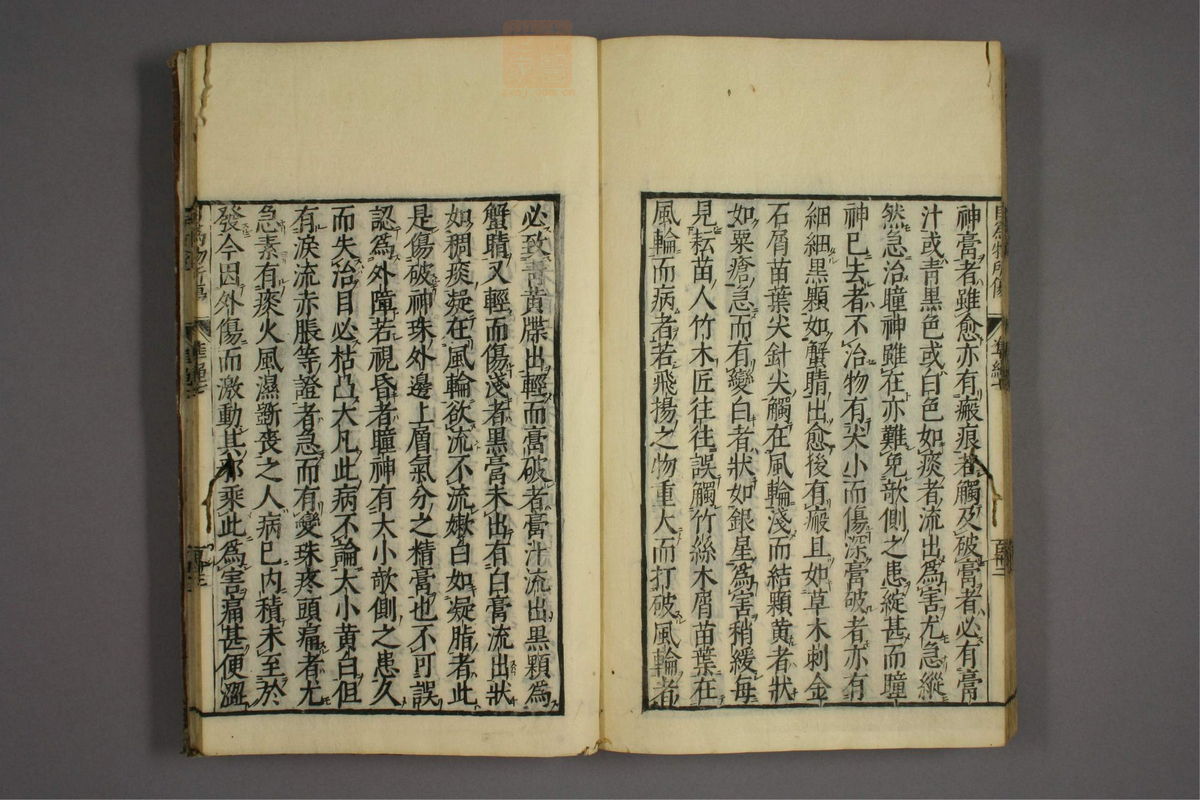 神膏者雖愈亦有瘢痕若觸及破膏者必有膏
汁或青黑色或白色如痰者流出為害尤急縱
然急治瞳神雖在亦難免欹側之患綻甚而瞳
神已去者不治物有尖小而傷深膏破者亦有
細細黑顆如蟹睛出愈後有瘢且如草木刺金
石屑苗葉尖針尖觸在風輪淺而結顆黃者狀
如粟瘡急而有變白者狀如銀星為害稍緩每
見耘苗人竹木匠往往誤觸竹絲木屑苗葉在
風輪而病者若飛揚之物重大而打破風輪者
必致青黃牒出輕而膏破者膏汁流出黑顆為
蟹睛又輕而傷淺者黑膏未出有白膏流出狀
如稠痰凝在風輪欲流不流嫩白如凝脂者此
是傷破神珠外邊上層氣分之精膏也不可誤
認為外障若視昏者瞳神有大小欹側之患久
而失治目必枯凸大凡此病不論大小黃白但
有淚流赤脹等證者急而有變珠疼頭痛者尤
急素有痰火風濕斲喪之人病已內積未至於
發今因外傷而激動其邪乘此為害痛甚便澀